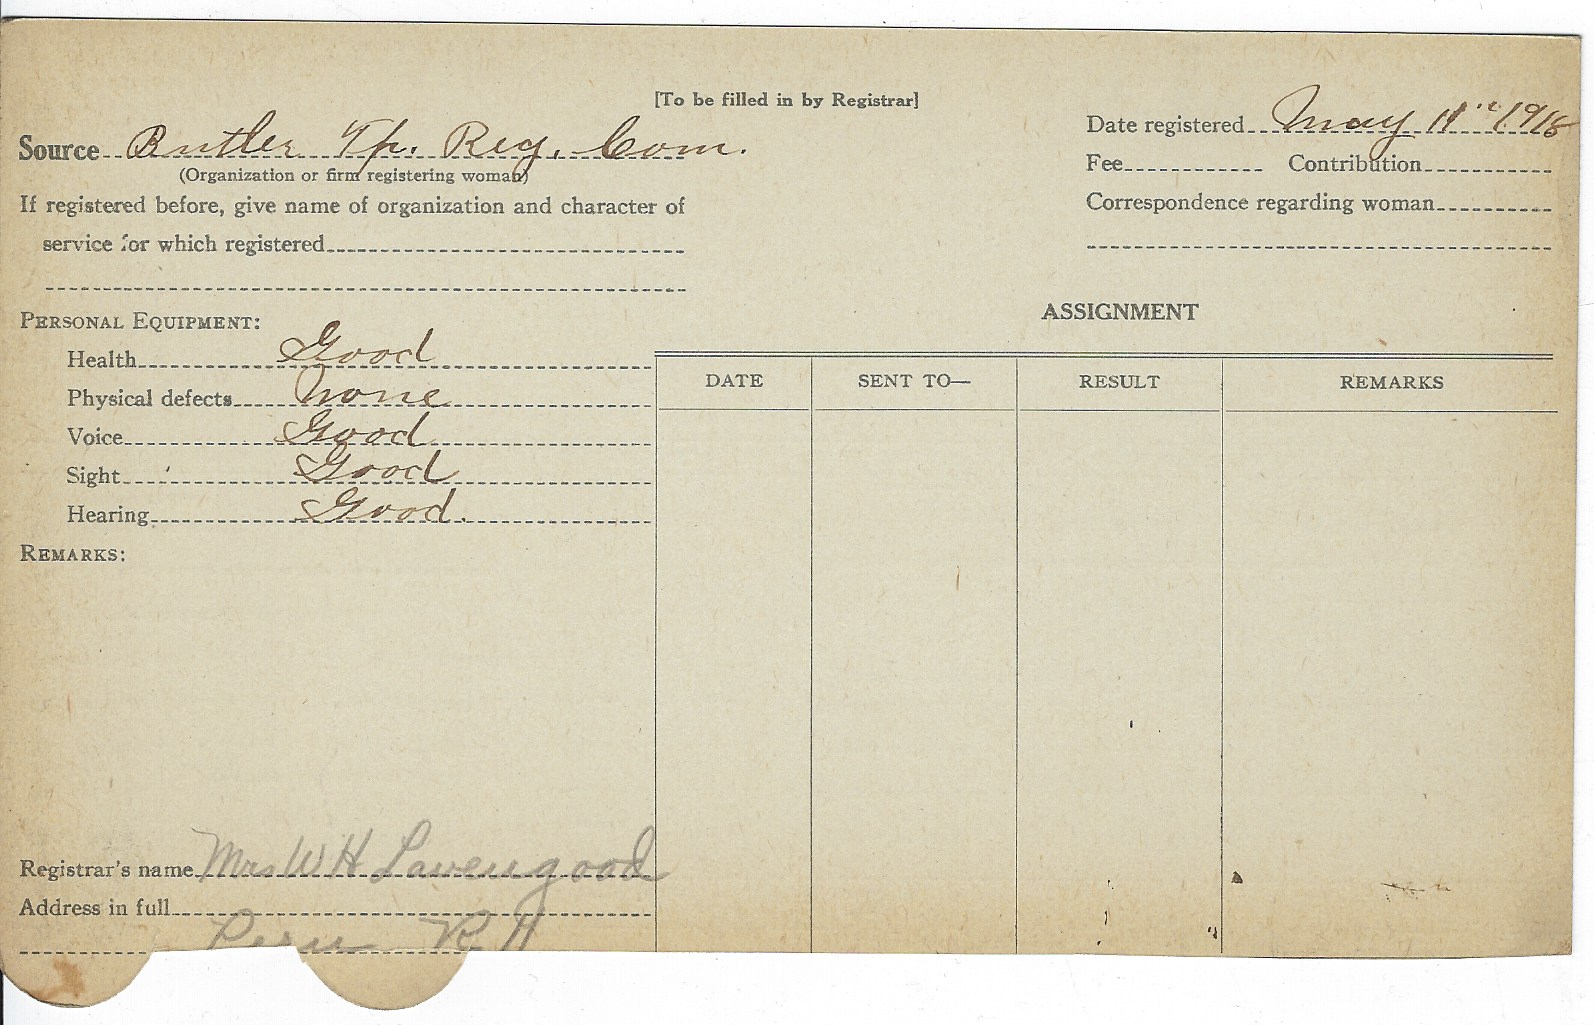 [To be filled in by Registrar]
Source Butler Tp. Reg. Com.
(Organization or firm registering woman)
If registered before, give name of organization and character of
service for which registered
Date registered May 11th 1918
Fee Contribution
Correspondence regarding woman
PERSONAL EQUIPMENT:
Health Good
Physical defects None
Voice Good
Sight Good
Hearing Good.
REMARKS:
ASSIGNMENT
DATE SENT TO— RESULT REMARKS
Registrar's name Mrs W H Lavengood
Address in full
Peru R